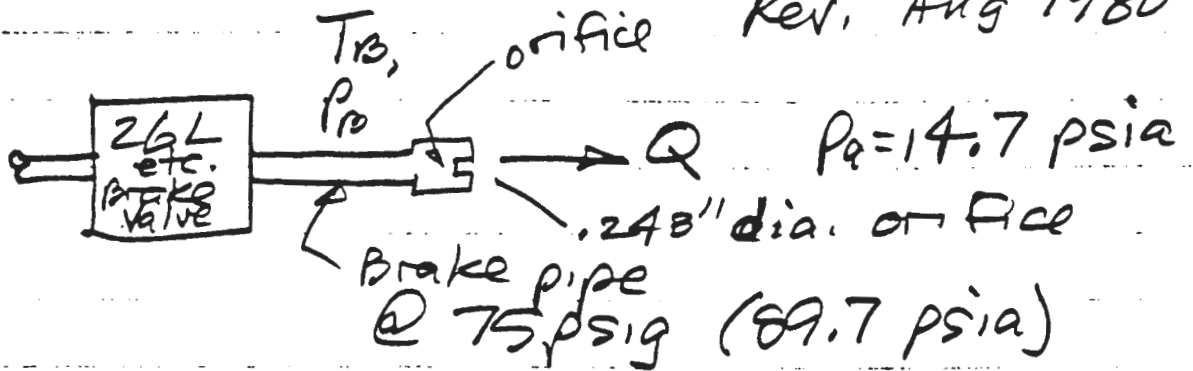 Rev. Aug 1980
orifice
TB,
PB
26L
etc.
Brake
valve
Q
Pa=14.7 psia
.248" dia. orifice
Brake pipe
@ 75 psig (89.7 psia)